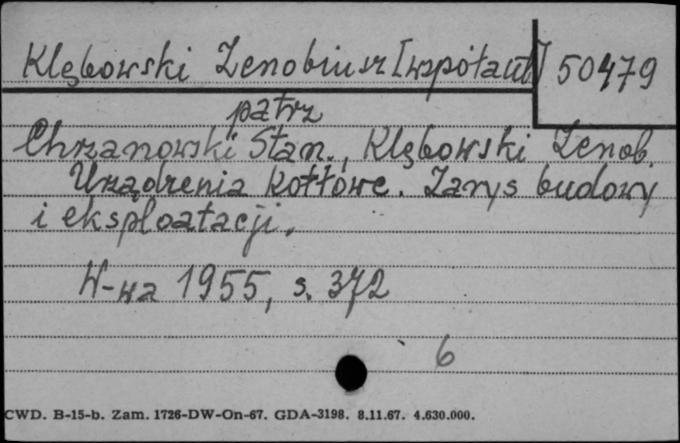 Klębowski Zenobiusz [współaut] 50479
patrz
Chrzanowski Stan., Klębowski Zenob.
Urządzenia kotłowe. Zarys budowy
i eksploatacji.
W-wa 1955, s. 372
6
CWD. B-15-b. Zam. 1726-DW-On-67. GDA-3198. 8.11.67. 4.630.000.